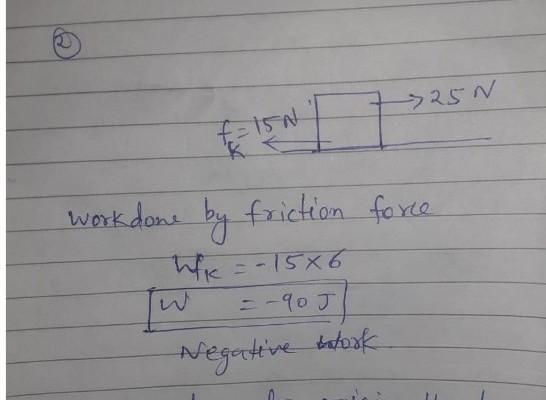 2
→25 N
fK = 15 N
workdone by friction force
WfK = -15×6
W = -90 J
Negative work